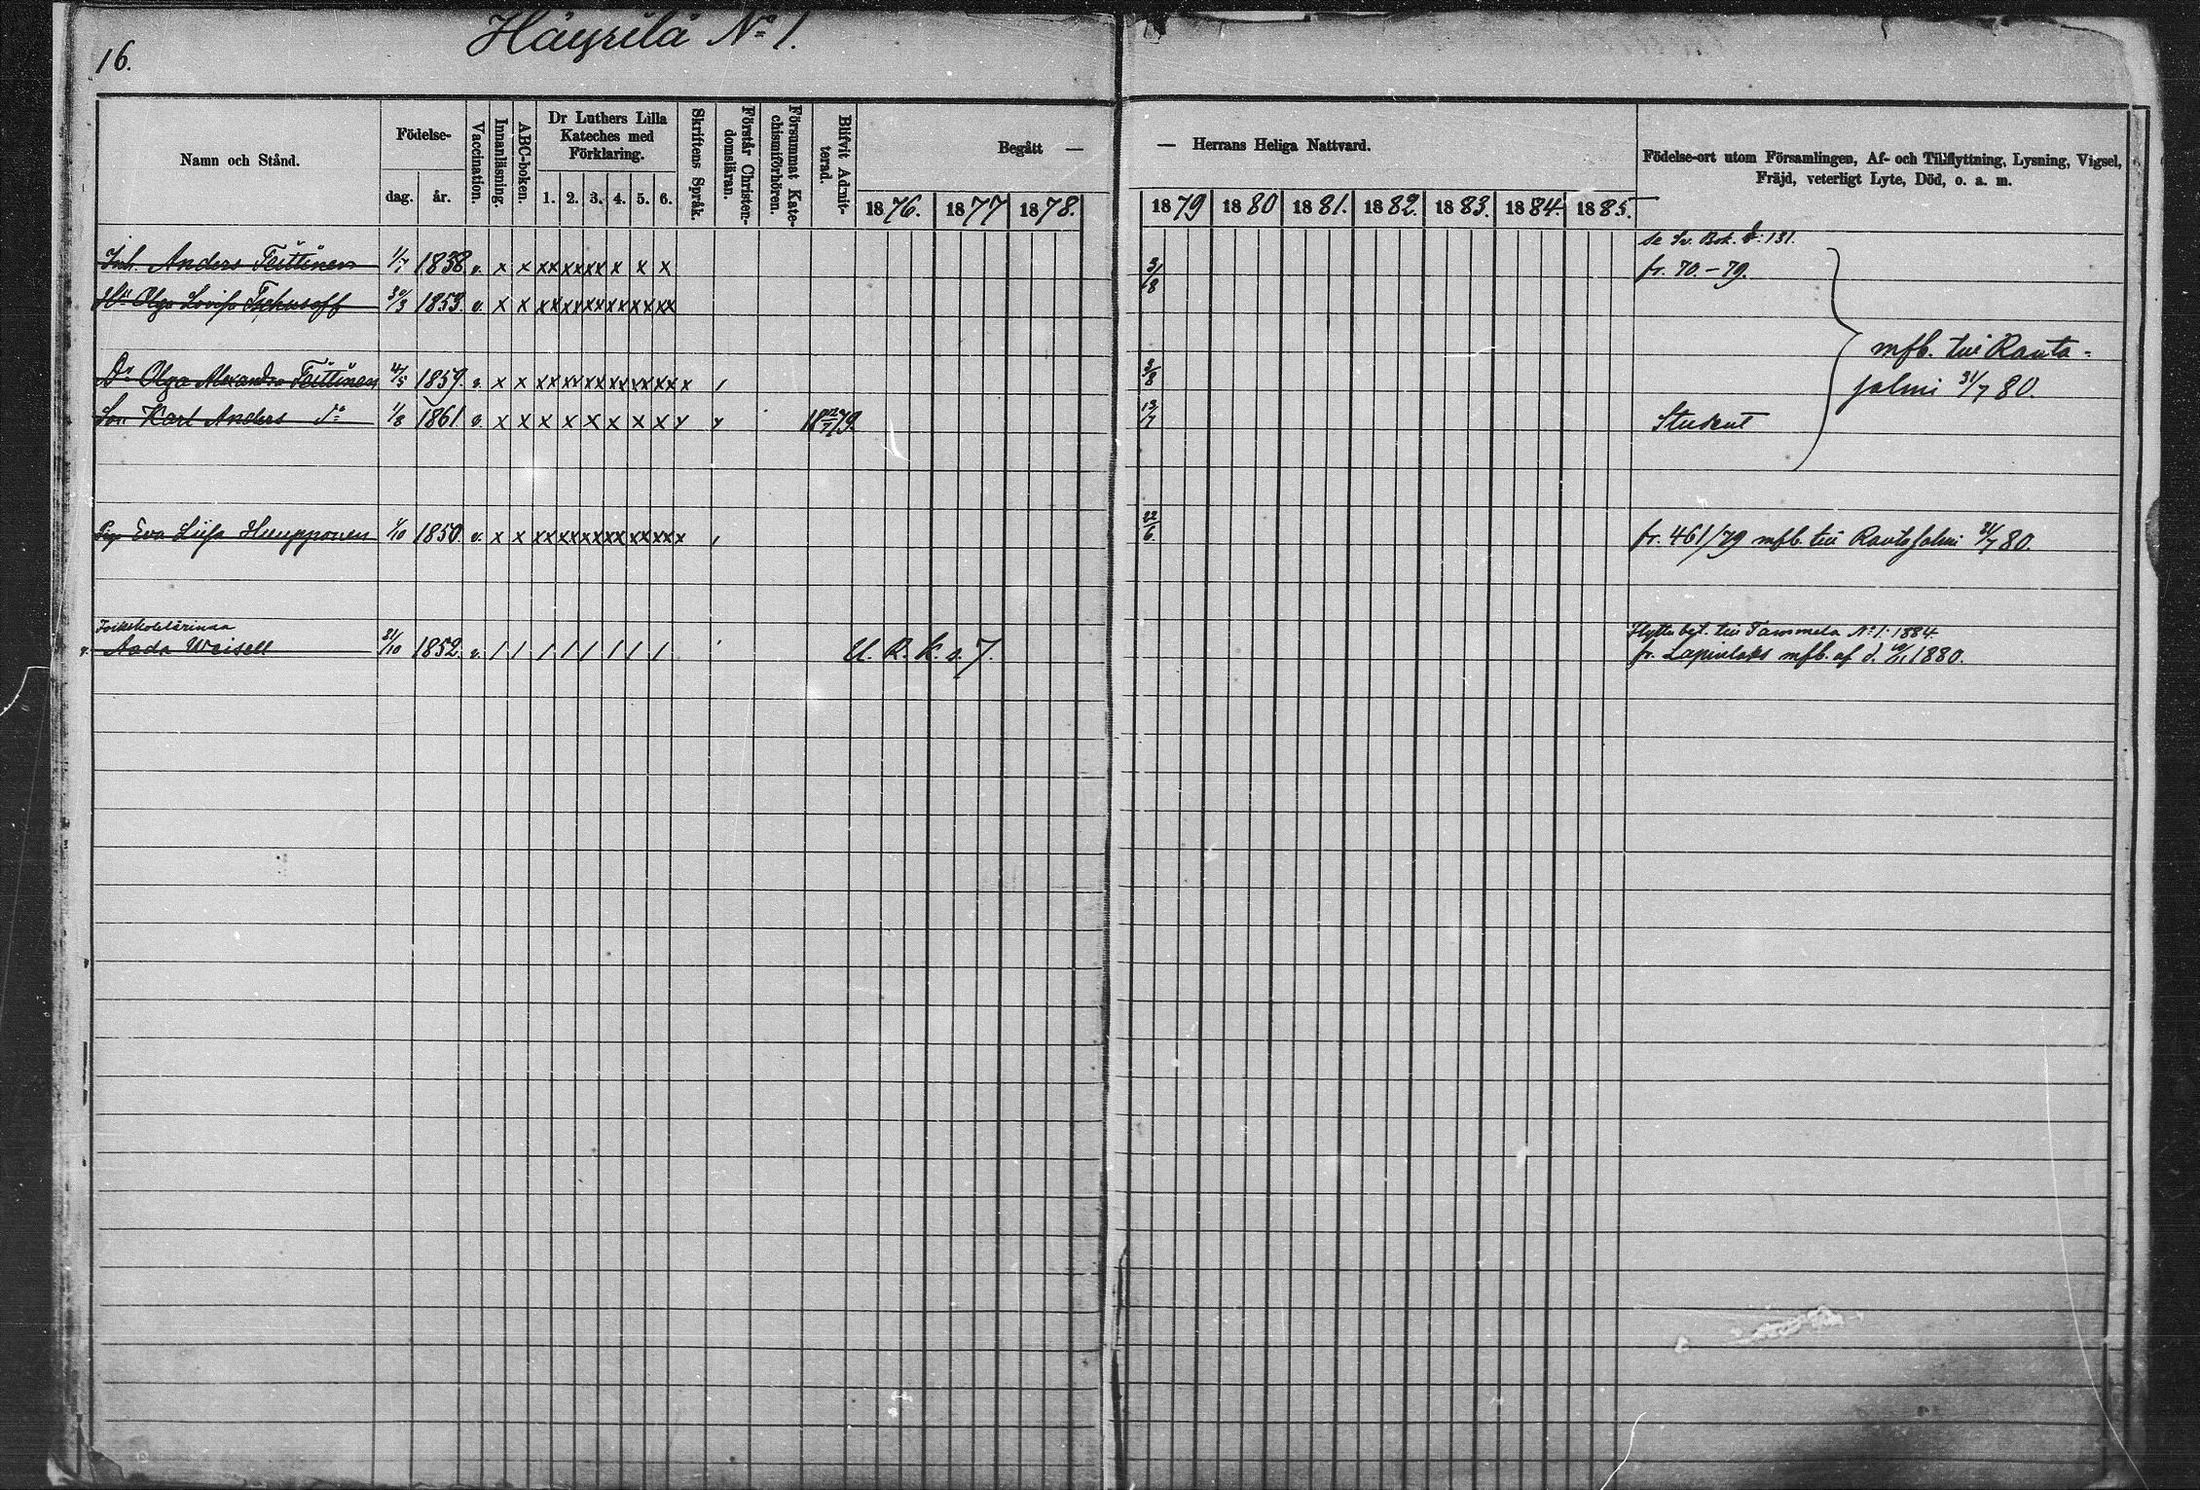 16.
Häyrilä No 1.
Namn och Stånd.
Födelse-
dag. år.
Vaccination.
Innanläsning.
ABC-boken.
Dr Luthers Lilla
Kateches med
Förklaring.
1. 2. 3. 4. 5. 6.
Skriftens Språk.
Förstår Christen-
domsläran.
Försummat Kate-
chismiförhören.
Blifvit Admit-
terad.
Begått —
1876. 1877 1878.
— Herrans Heliga Nattvard.
1879 1880 1881. 1882. 1883. 1884. 1885.
Födelse-ort utom Församlingen, Af- och Tillflyttning, Lysning, Vigsel,
Fräjd, veterligt Lyte, Död, o. a. m.
se Sv. Bok. 131.
Inh. Anders Teittinen 1/7 1838 v. x x xx xx xx x x x 3/8 fr. 70.-79.
Hu Olga Lovisa 30/3 1853. v. x x xx xx xx xx xx xx
mfb. till Ranta-
Dr Olga Alexandra Teittinen 4/5 1859. v. x x xx xx xx xx xx xx x / 3/8
salmi 31/7 80.
Son Karl Anders do 1/8 1861 v. x x x x x x x x 13/7 Student
Pig Eva Liisa Hunpponen 1/10 1850 v. x x xx xx xx xx xx xx x / 22/6 fr. 461/79 mfb. till Rantasalmi 31/7 80.
Folkskolelärinna
Flytt. bet. till Tammela No 1. 1884.
Aada Weisell 21/10 1852. v. / / / / / / / / U. R. K. s. 7. fr. Lapinlaks mfb. af d. 1880.